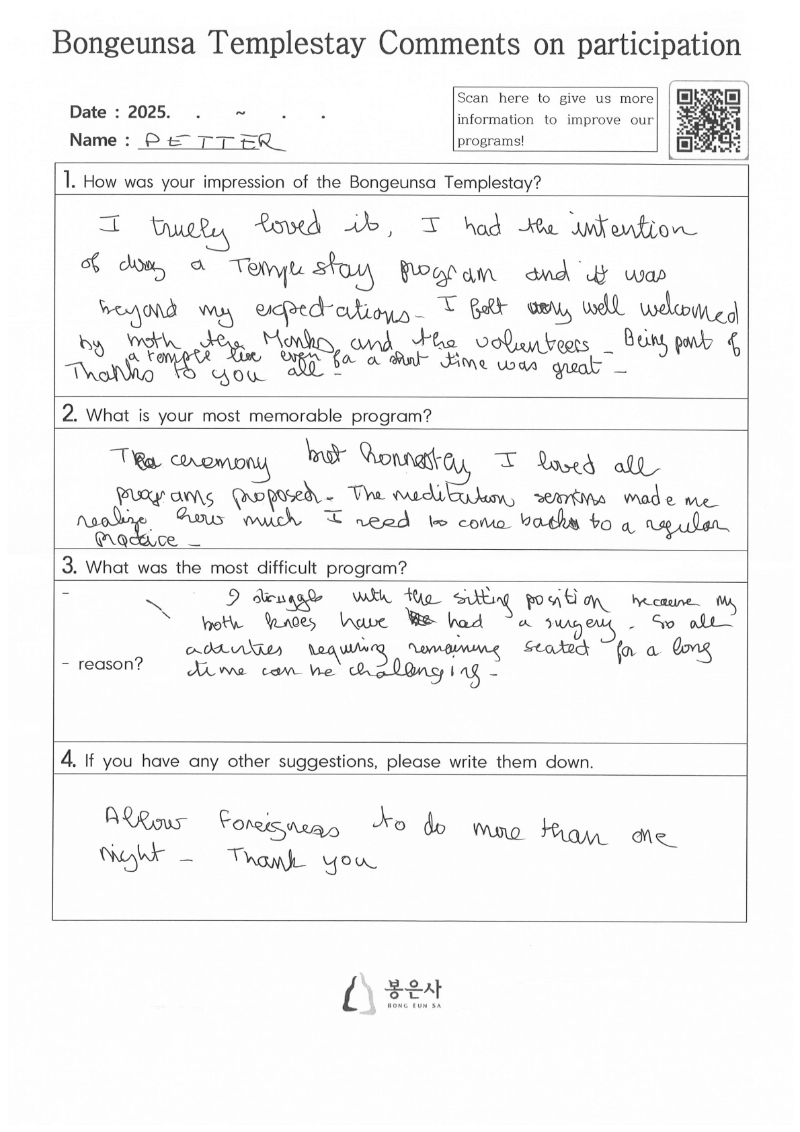 Bongeunsa Templestay Comments on participation
Date : 2025. . ~ . .
Name : PETTER
Scan here to give us more
information to improve our
programs!
1. How was your impression of the Bongeunsa Templestay?
I truely loved it, I had the intention
of doing a Temple stay program and it was
beyond my expectations - I felt very well welcomed
by both the Monks and the volunteers - Being part of
a temple live even for a short time was great -
Thanks to you all -
2. What is your most memorable program?
Tea ceremony but honnestly I loved all
programs proposed - The meditation sessions made me
realize how much I need to come back to a regular
practice -
3. What was the most difficult program?
-
I struggle with the sitting position because my
both knees have had a surgery. So all
- reason?
activities requiring remaining seated for a long
time can be challenging -
4. If you have any other suggestions, please write them down.
Allow foreigners to do more than one
night - Thank you
봉은사
BONG EUN SA